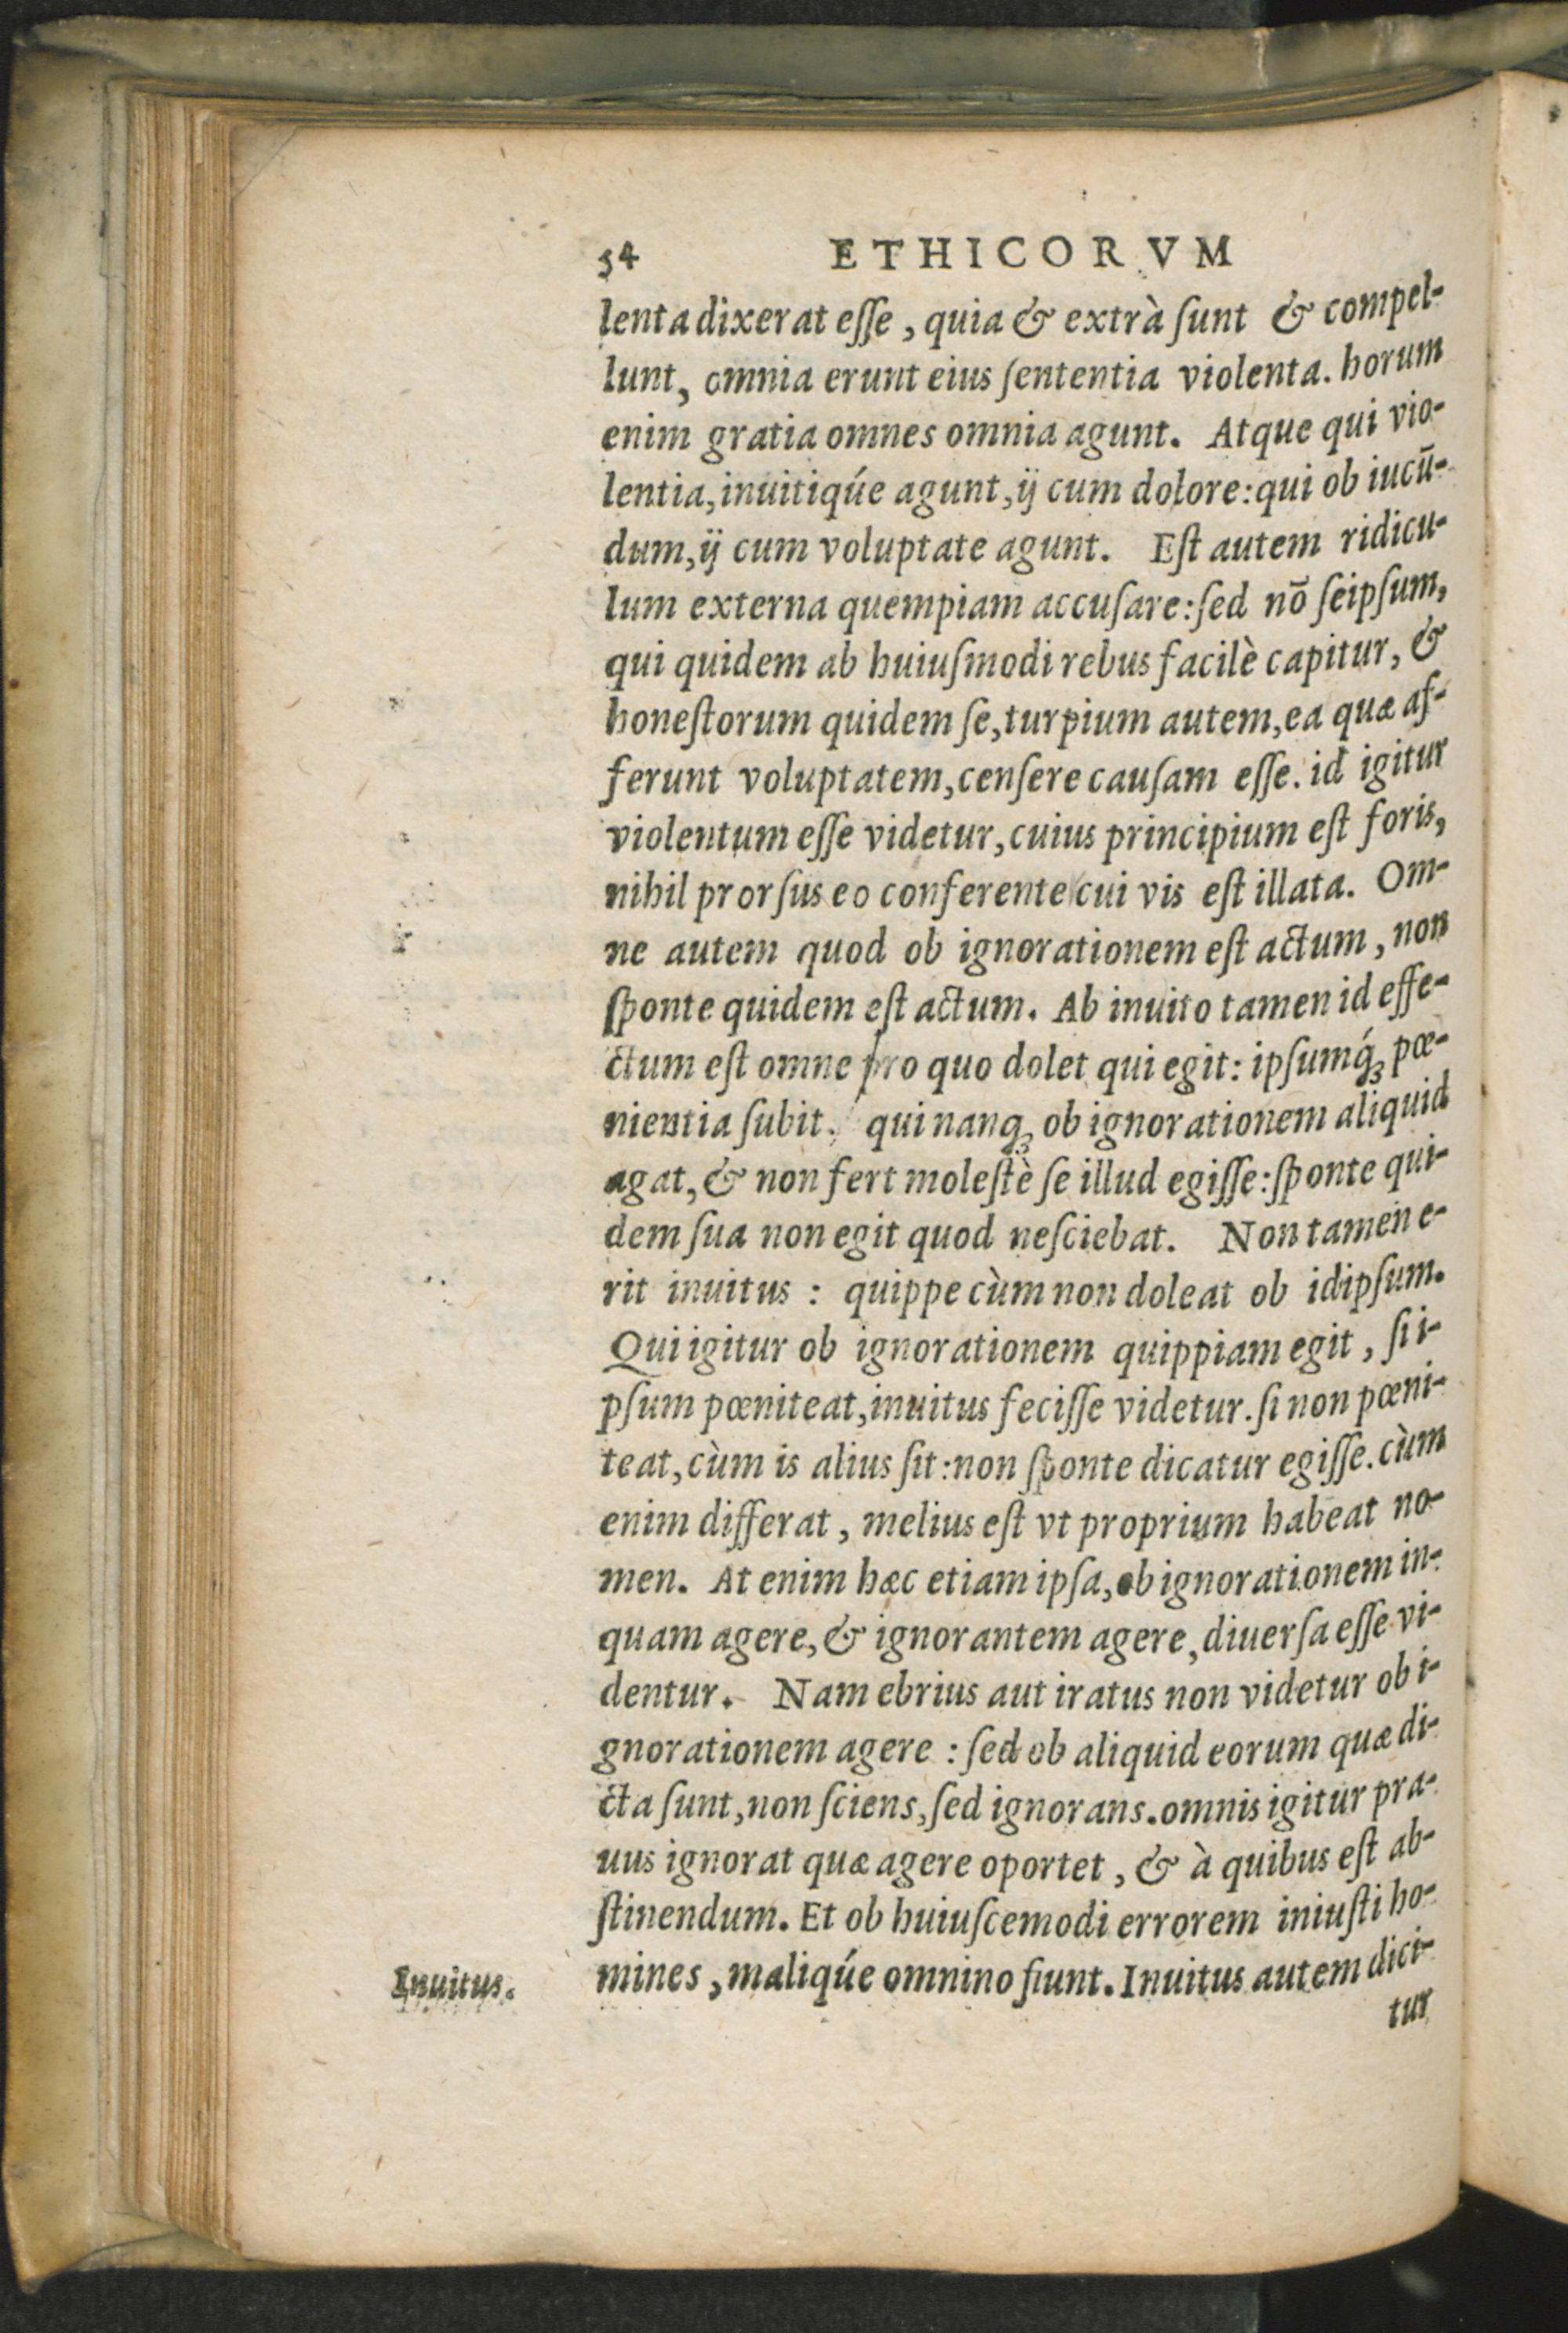 54 ETHICORVM
lenta dixerat eſſe, quia & extrà ſunt & compel-
lunt, omnia erunt eius ſententia violenta. horum
enim gratia omnes omnia agunt. Atque qui vio-
lentia, inuitiqúe agunt, ij cum dolore: qui ob iucū-
dum, ij cum voluptate agunt. Eſt autem ridicu-
lum externa quempiam accuſare: ſed nō ſeipſum,
qui quidem ab huiuſmodi rebus facilè capitur, &
honeſtorum quidem ſe, turpium autem, ea quæ af-
ferunt voluptatem, cenſere cauſam eſſe. id igitur
violentum eſſe videtur, cuius principium eſt foris,
nihil prorſus eo conferente cui vis eſt illata. Om-
ne autem quod ob ignorationem eſt actum, non
ſponte quidem eſt actum. Ab inuito tamen id effe-
ctum eſt omne pro quo dolet qui egit: ipſumq́ꝫ pœ-
nientia ſubit. qui nanqꝫ ob ignorationem aliquid
agat, & non fert moleſtè ſe illud egiſſe: ſponte qui-
dem ſua non egit quod neſciebat. Non tamen e-
rit inuitus : quippe cùm non doleat ob idipſum.
Qui igitur ob ignorationem quippiam egit, ſi i-
pſum pœniteat, inuitus feciſſe videtur. ſi non pœni-
teat, cùm is alius ſit: non ſponte dicatur egiſſe. cùm
enim differat, melius eſt vt proprium habeat no-
men. At enim hæc etiam ipſa, ob ignorationem in-
quam agere, & ignorantem agere, diuerſa eſſe vi-
dentur. Nam ebrius aut iratus non videtur ob i-
gnorationem agere : ſed ob aliquid eorum quæ di-
cta ſunt, non ſciens, ſed ignorans. omnis igitur pra-
uus ignorat quæ agere oportet, & à quibus eſt ab-
ſtinendum. Et ob huiuſcemodi errorem iniuſti ho-
Inuitus. mines, maliqúe omnino fiunt. Inuitus autem dici-
tur